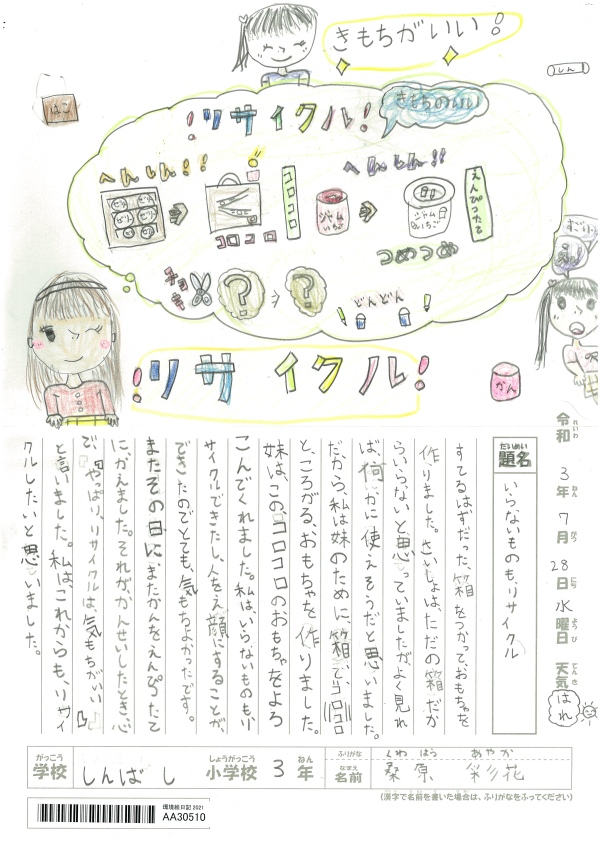 きもちがいい!
はこ
!リサイクル!
きもちのいい
へんしん!!
へんしん!!
ゼリー ゼリー
ゼリー ゼリー
ゼリー ゼリー
コロコロ
コロコロ
ジャム
いちご
ジャム
いちご
えんぴつたて
つめつめ
チョキ
?
?
どんどん
すごい
!リサイクル!
かん
令和3年7月28日水曜日 天気 はれ
れいわ ねん がつ にち すい ようび てんき
だいめい
題名
いらないものも、リサイクル
すてるはずだった、箱をつかって、おもちゃを
作りました。さいしょは、ただの箱だか
らいらないと思っていましたが、よく見れ
ば、何かに使えそうだと思いました。
だから、私は妹のために、箱でコロコロ
と、ころがる、おもちゃを作りました。
妹は、この、コロコロのおもちゃをよろ
こんでくれました。私は、いらないものもリ
サイクルできたし、人をえ顔にすることが、
できたのでとても、気もちよかったです。
またその日にまたかんをえんぴつたて
に、かえました。それが、かんせいしたとき、心
で、「やっぱり、リサイクルは、気もちがいい」
と言いました。私はこれからも、リサイ
クルしたいと思いました。
がっこう しょうがっこう ねん ふりがな くわはら あやか
学校 しんばし 小学校 3年 なまえ 名前 桑原 彩花
(漢字で名前を書いた場合は、ふりがなをふってください)
環境絵日記 2021
AA30510